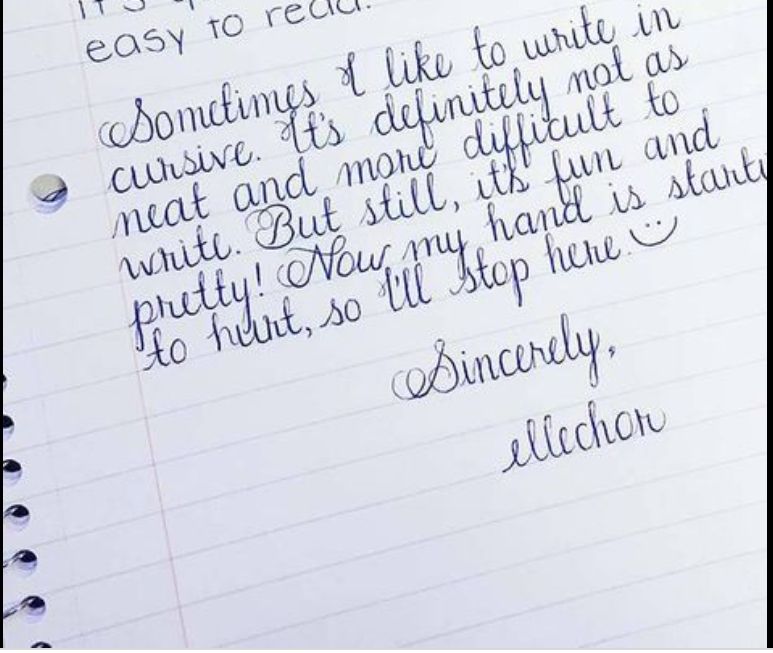 easy to read.
Sometimes I like to write in
cursive. It's definitely not as
neat and more difficult to
write. But still, it's fun and
pretty! Now my hand is starti
to hurt, so I'll stop here.
Sincerely,
ellechor